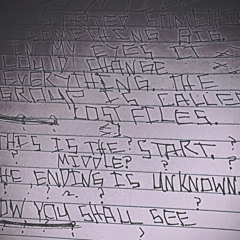 STARTED SOMETHING
SOMETHING BIG.
IN MY EYES IT
COULD CHANGE
EVERYTHING. THE
GROUP IS CALLED
LOST FILES.
THIS IS THE START. ?
? MIDDLE? ?
THE ENDING IS UNKNOWN.
? ? ? ? ?
NOW YOU SHALL SEE
? ?